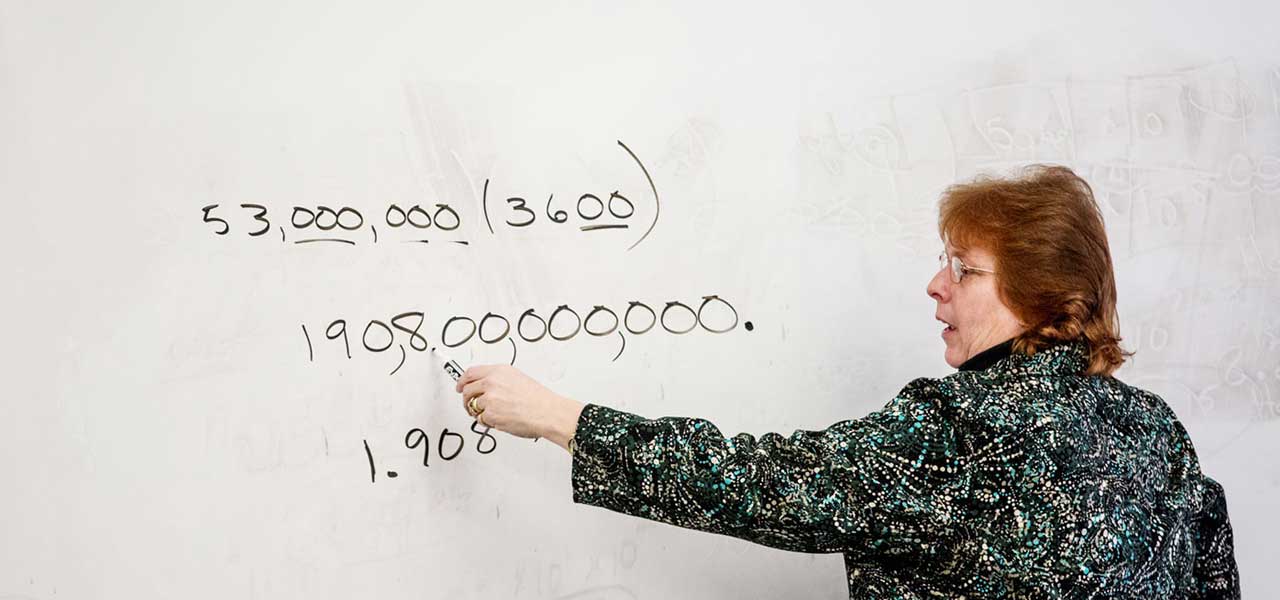 53,000,000 (3600)
190,8.00,000,000.
1.908